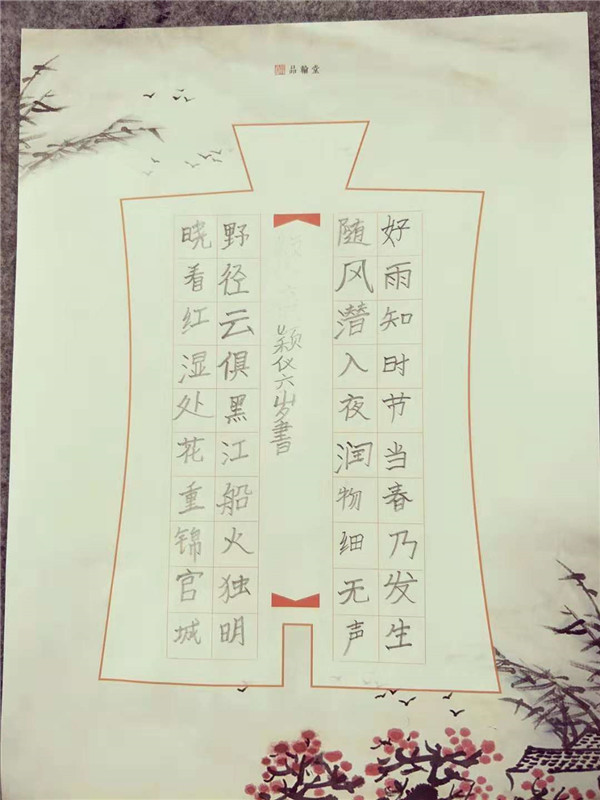 品翰堂
好雨知时节当春乃发生
随风潜入夜润物细无声
颖仪六岁書
野径云俱黑江船火独明
晓看红湿处花重锦官城